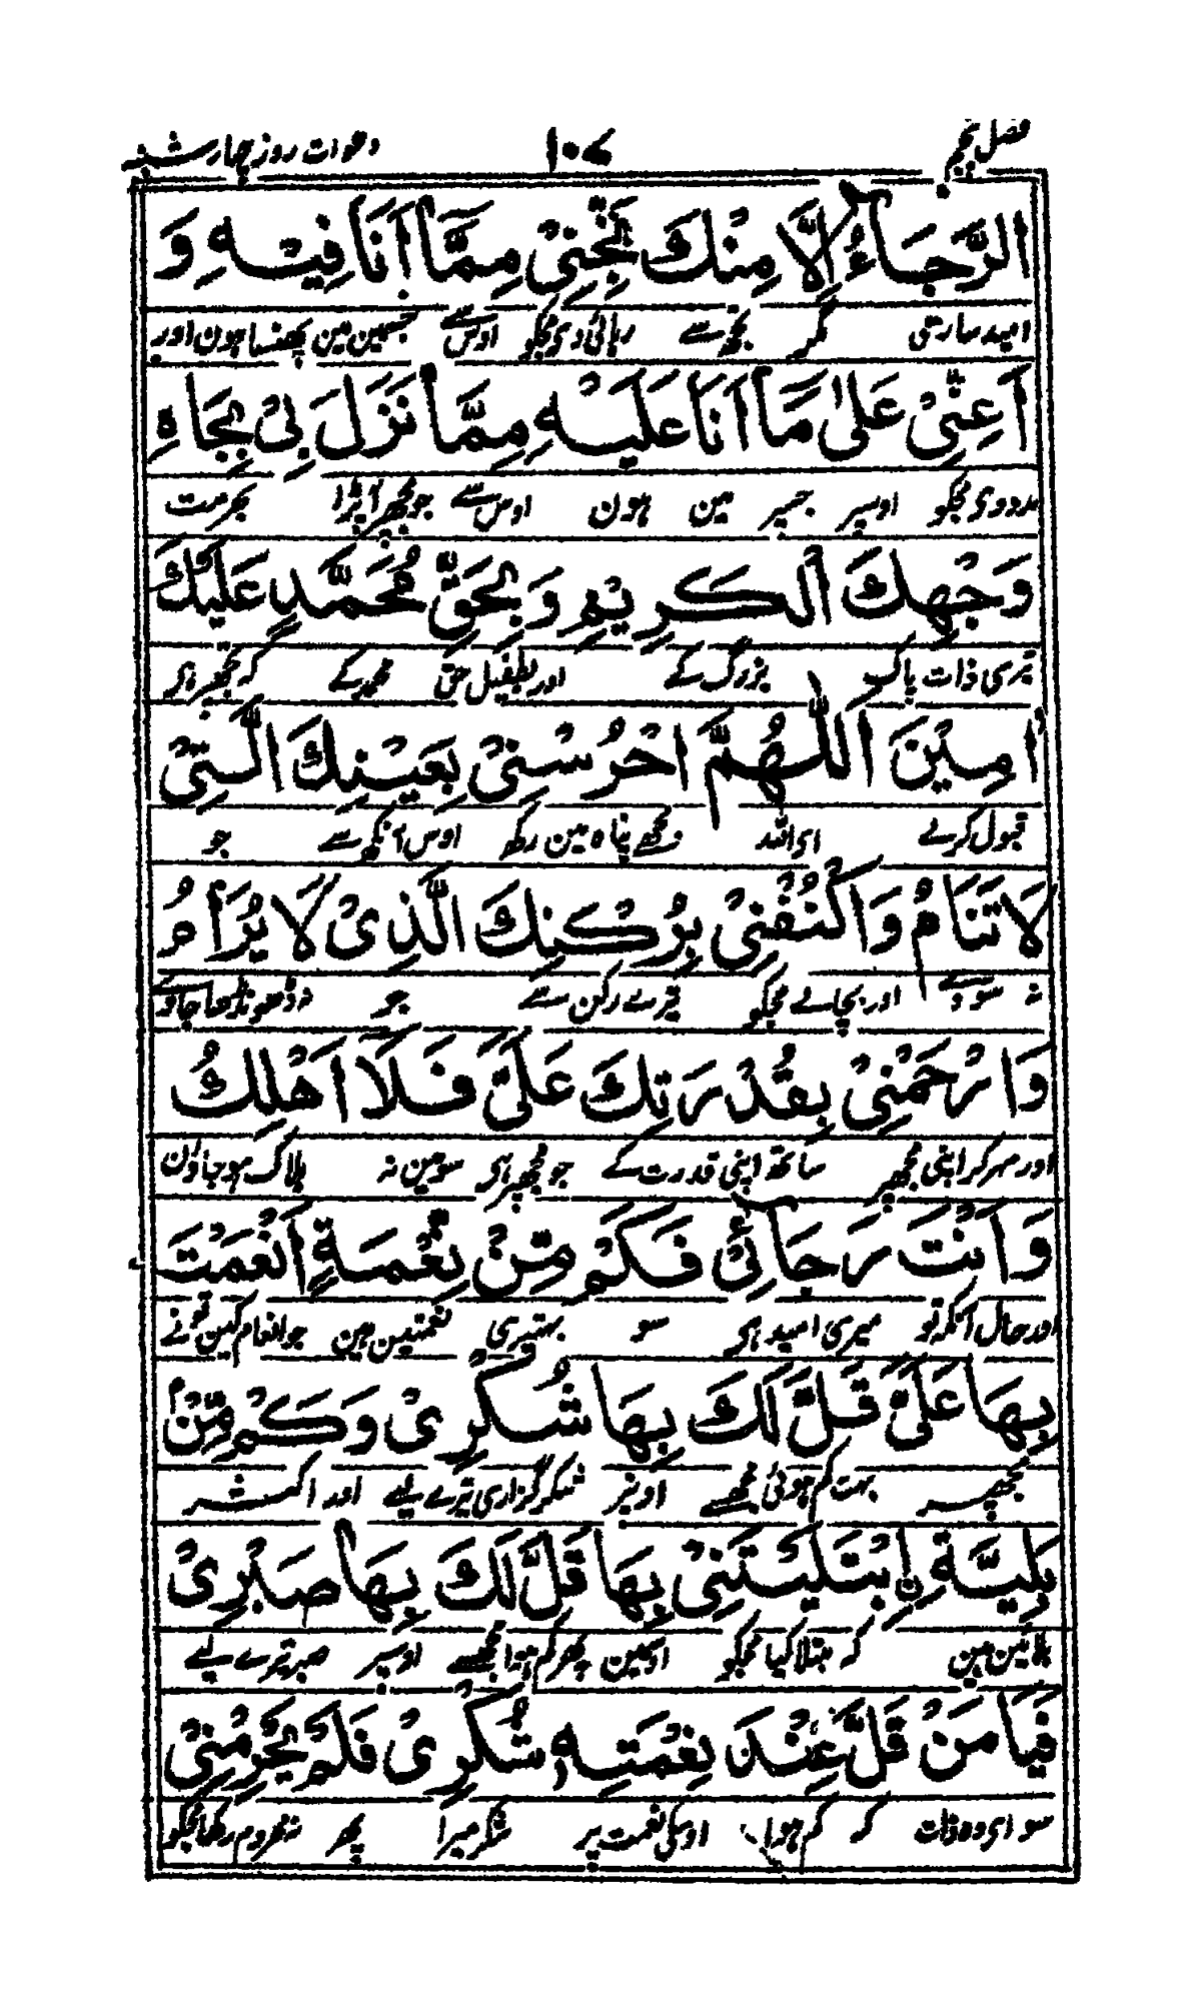 فصل پنجم ۱۰۷ دعوات روز چہار شنبہ
الرَّجَاءُ اِلَّا مِنْكَ نَجِّنِيْ مِمَّا اَنَا فِيْهِ وَ
امید ساری مگر تجھ سے رہائی دی مجکو اوس سے جسمین مین پھنسا ہون اور
اَعِنِّيْ عَلٰى مَا اَنَا عَلَيْهِ مِمَّا نَزَلَ بِيْ بِجَاهِ
مدد دی مجکو اوسپر جسپر مین ہون اوس سے جو مجھپر آپڑا بحرمت
وَجْهِكَ الْكَرِيْمِ وَبِحَقِّ مُحَمَّدٍ عَلَيْكَ
تیری ذات پاک بزرگ کے اور بطفیل حق محمد کے کہ تجھپر ہی
اٰمِيْنَ اَللّٰهُمَّ احْرُسْنِيْ بِعَيْنِكَ الَّتِيْ
قبول کرلے ای اللہ رکھ مجھے پناہ مین اوس آنکھ سے جو
لَا تَنَامُ وَاكْنُفْنِيْ بِرُكْنِكَ الَّذِيْ لَا يُرَامُ
نہ سووے اور بچالے مجکو تیرے رکن سے جو نہ ڈھونڈھا جاوے
وَارْحَمْنِيْ بِقُدْرَتِكَ عَلَيَّ فَلَا اَهْلِكُ
اور مہر کر اپنی مجھپر ساتھ اپنی قدرت کے جو مجھپر ہی سو مین نہ ہلاک ہو جاؤن
وَاَنْتَ رَجَائِيْ فَكَمْ مِّنْ نِّعْمَةٍ اَنْعَمْتَ
اور حال آنکہ تو میری امید ہی سو بہتیری نعمتین ہین جو انعام کین تونے
بِهَا عَلَيَّ قَلَّ لَكَ بِهَا شُكْرِيْ وَكَمْ مِّنْ
مجھپر بہت کم ہوئی مجھسے اونپر شکر گزاری تیرے لیے اور اکثر
بَلِيَّةٍ اِبْتَلَيْتَنِيْ بِهَا قَلَّ لَكَ بِهَا صَبْرِيْ
بلائین ہین کہ مبتلا کیا مجکو اونمین پھر کم ہوا مجھسے اوسپر صبر تیرے لیے
فَيَا مَنْ قَلَّ عِنْدَ نِعْمَتِهٖ شُكْرِيْ فَلَمْ يَحْرِمْنِيْ
سو ای وہ ذات کہ کم ہوا اوسکی نعمت پر شکر میرا پھر نہ محروم رکھا مجکو